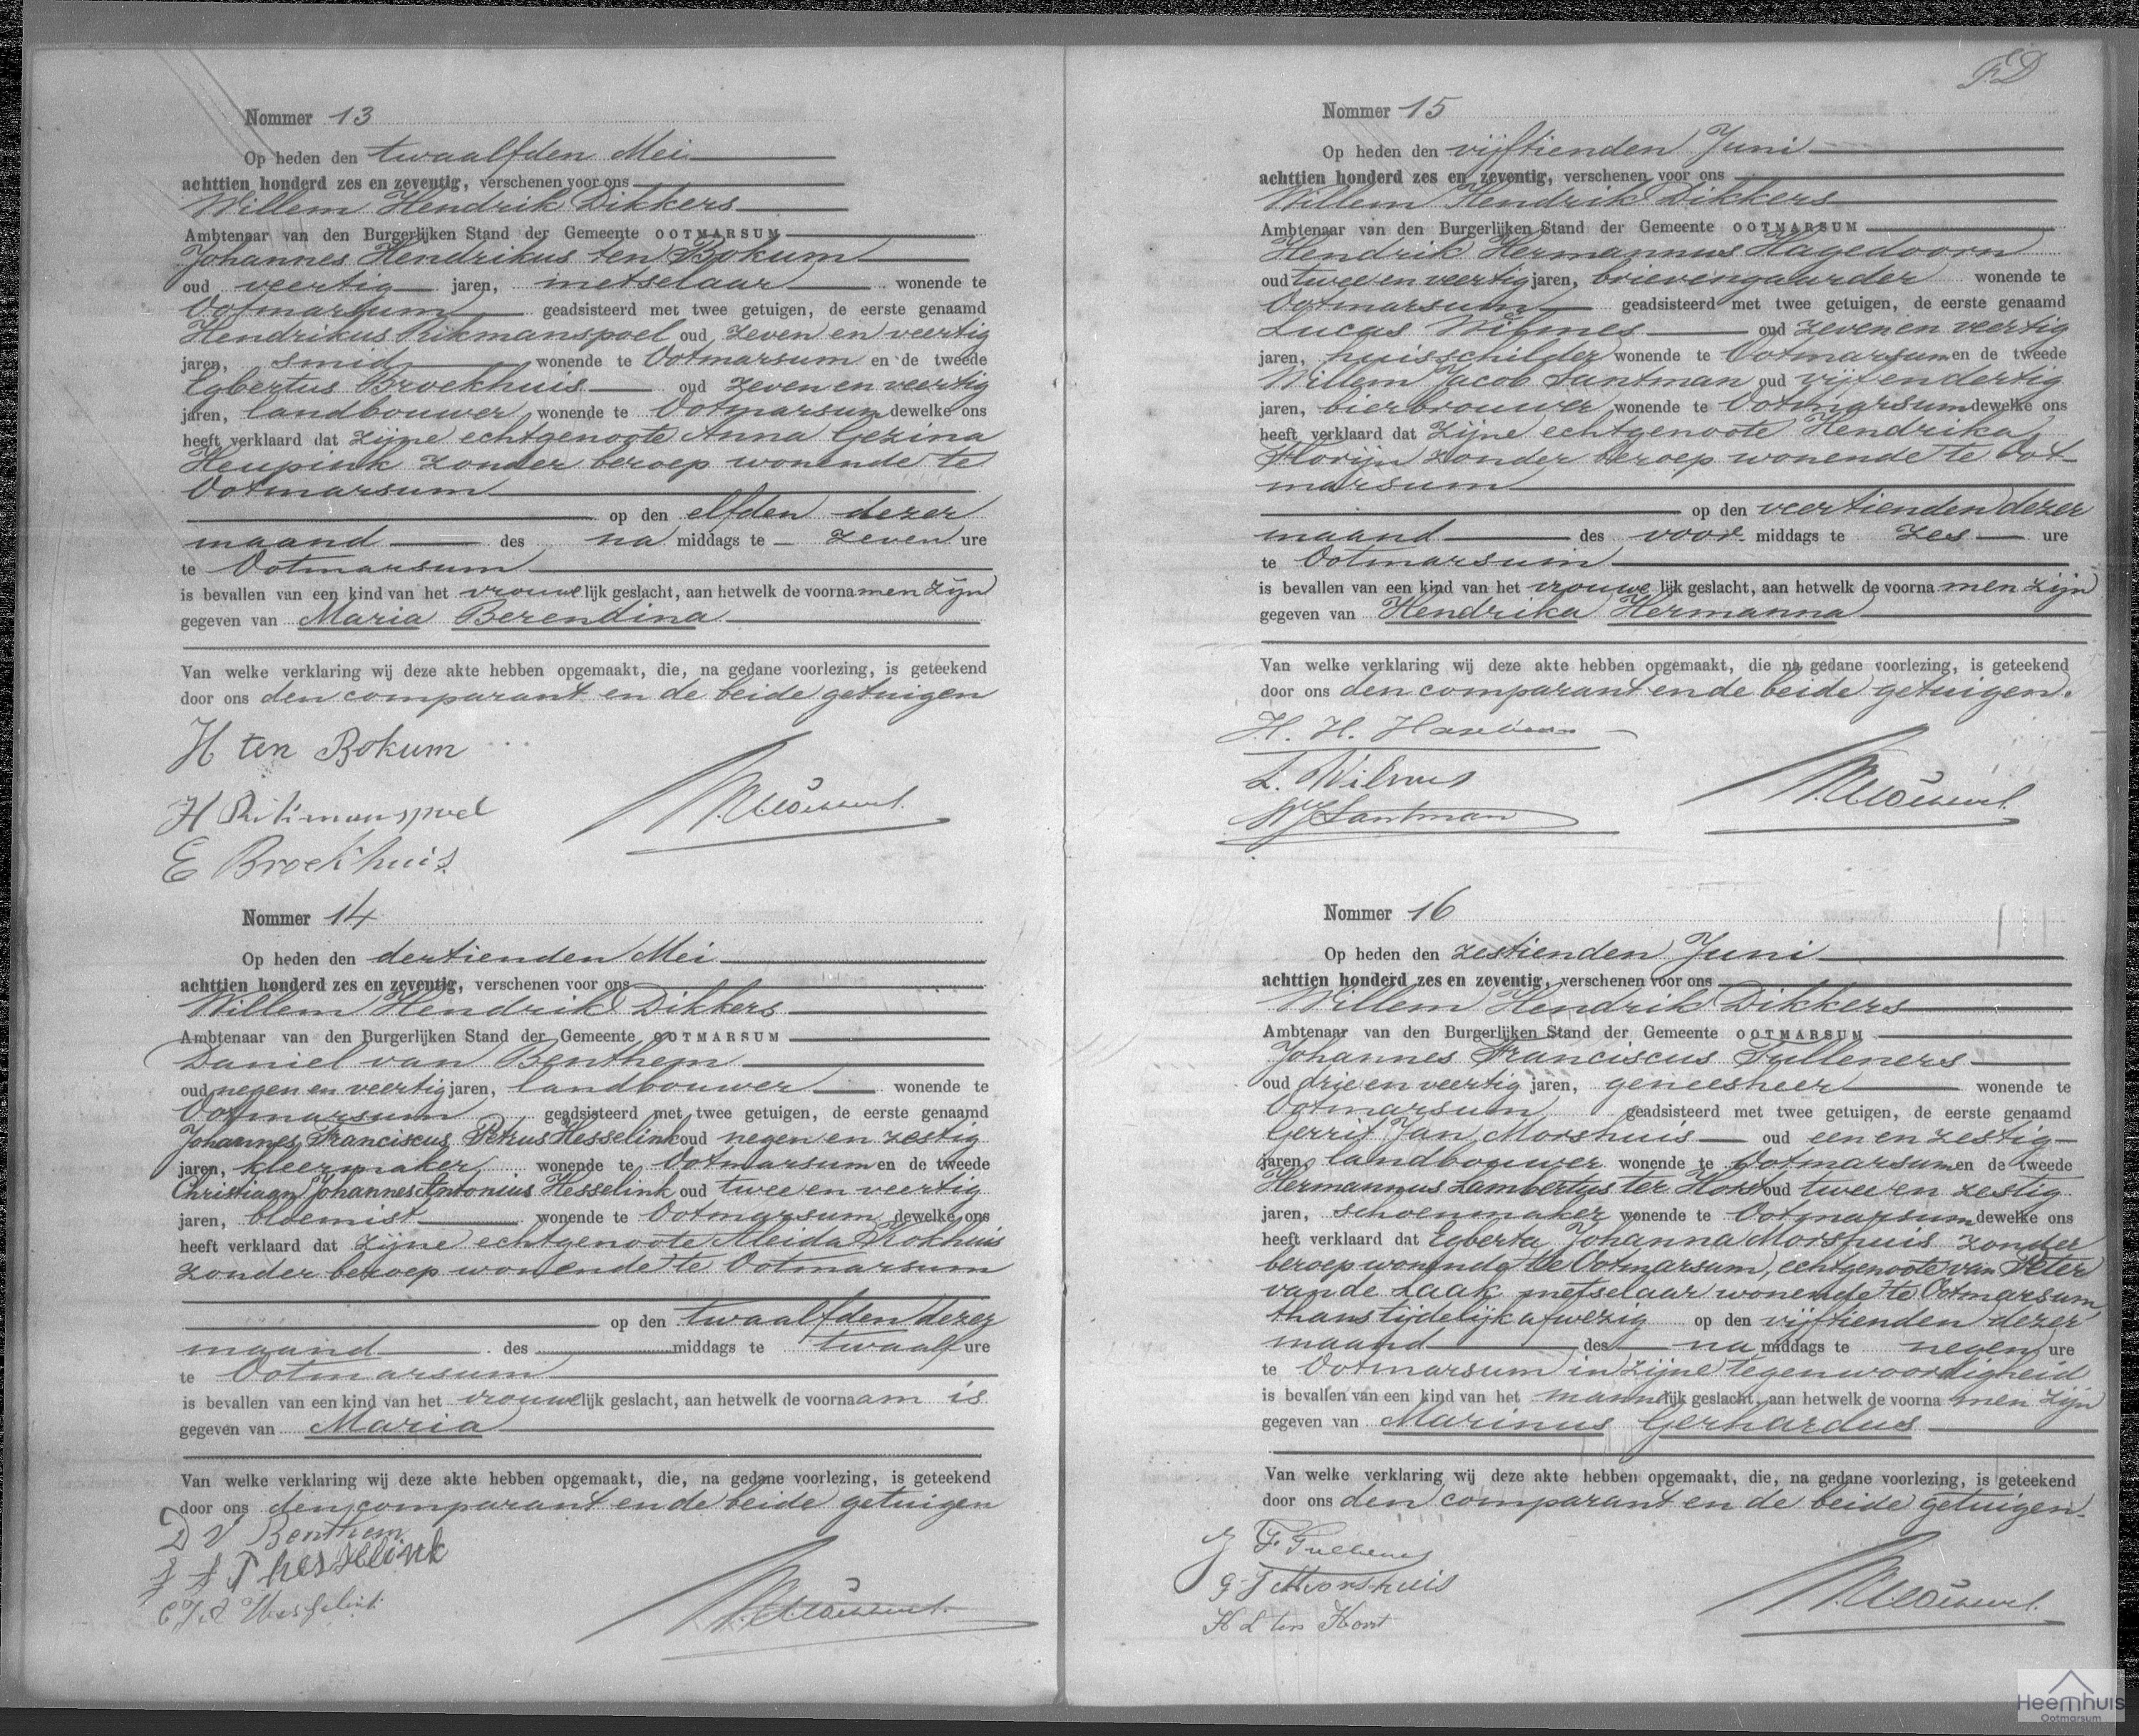 Nommer 13
Op heden den twaalfden Mei
achttien honderd zes en zeventig, verschenen voor ons
Willem Hendrik Dikkers
Ambtenaar van den Burgerlijken Stand der Gemeente OOTMARSUM
Johannes Hendrikus ten Bokum
oud veertig jaren, metselaar wonende te
Ootmarsum geadsisteerd met twee getuigen, de eerste genaamd
Hendrikus Rikmanspoel oud zeven en veertig
jaren, smid wonende te Ootmarsum en de tweede
Egbertus Broekhuis oud zeven en veertig
jaren, landbouwer wonende te Ootmarsum dewelke ons
heeft verklaard dat zijne echtgenoote Anna Gezina
Heupink zonder beroep wonende te
Ootmarsum
op den elfden dezer
maand des na middags te zeven ure
te Ootmarsum
is bevallen van een kind van het vrouwelijk geslacht, aan hetwelk de voornamen zijn
gegeven van Maria Berendina
Van welke verklaring wij deze akte hebben opgemaakt, die, na gedane voorlezing, is geteekend
door ons den comparant en de beide getuigen
H ten Bokum
H Rikmanspoel
E Broekhuis.
Nommer 14
Op heden den dertienden Mei
achttien honderd zes en zeventig, verschenen voor ons
Willem Hendrik Dikkers
Ambtenaar van den Burgerlijken Stand der Gemeente OOTMARSUM
Daniel van Benthem
oud negen en veertig jaren, landbouwer wonende te
Ootmarsum geadsisteerd met twee getuigen, de eerste genaamd
Johannes Franciscus Petrus Hesselink oud negen en zestig
jaren, kleermaker wonende te Ootmarsum en de tweede
Christiaan Johannes Antonius Hesselink oud twee en veertig
jaren, bloemist wonende te Ootmarsum dewelke ons
heeft verklaard dat zijne echtgenoote Aleida Kokhuis
zonder beroep wonende te Ootmarsum
op den twaalfden dezer
maand des middags te twaalf ure
te Ootmarsum
is bevallen van een kind van het vrouwelijk geslacht, aan hetwelk de voornaam is
gegeven van Maria
Van welke verklaring wij deze akte hebben opgemaakt, die, na gedane voorlezing, is geteekend
door ons den comparant en de beide getuigen
D V Benthem
J F P hesselink
C J A Hesselink
FD
Nommer 15
Op heden den vijftienden Juni
achttien honderd zes en zeventig, verschenen voor ons
Willem Hendrik Dikkers
Ambtenaar van den Burgerlijken Stand der Gemeente OOTMARSUM
Hendrik Hermannus Hagedoorn
oud twee en veertig jaren, brievengaarder wonende te
Ootmarsum geadsisteerd met twee getuigen, de eerste genaamd
Lucas Wilmes oud zeven en veertig
jaren, huisschilder wonende te Ootmarsum en de tweede
Willem Jacob Santman oud vijf en dertig
jaren, bierbrouwer wonende te Ootmarsum dewelke ons
heeft verklaard dat zijne echtgenoote Hendrika
Florijn zonder beroep wonende te Oot-
marsum
op den veertienden dezer
maand des voor middags te zes ure
te Ootmarsum
is bevallen van een kind van het vrouwelijk geslacht, aan hetwelk de voornamen zijn
gegeven van Hendrika Hermanna
Van welke verklaring wij deze akte hebben opgemaakt, die na gedane voorlezing, is geteekend
door ons den comparant en de beide getuigen.
H. H. Hagedoorn
L. Wilmes
WJ Santman
Nommer 16
Op heden den zestienden Juni
achttien honderd zes en zeventig, verschenen voor ons
Willem Hendrik Dikkers
Ambtenaar van den Burgerlijken Stand der Gemeente OOTMARSUM
Johannes Franciscus Fulleners
oud drie en veertig jaren, geneesheer wonende te
Ootmarsum geadsisteerd met twee getuigen, de eerste genaamd
Gerrit Jan Morshuis oud een en zestig
jaren, landbouwer wonende te Ootmarsum en de tweede
Hermannus Lambertus ter Horst oud twee en zestig
jaren, schoenmaker wonende te Ootmarsum dewelke ons
heeft verklaard dat Egberta Johanna Morshuis zonder
beroep wonende te Ootmarsum, echtgenoote van Peter
van de Laak metselaar wonende te Ootmarsum
thans tijdelijk afwezig op den vijftienden dezer
maand des na middags te negen ure
te Ootmarsum in zijne tegenwoordigheid
is bevallen van een kind van het mannelijk geslacht, aan hetwelk de voornamen zijn
gegeven van Marinus Gerhardus
Van welke verklaring wij deze akte hebben opgemaakt, die, na gedane voorlezing, is geteekend
door ons den comparant en de beide getuigen.
J F Fulleners
G J Morshuis
H L ter Horst
Heemhuis
Ootmarsum